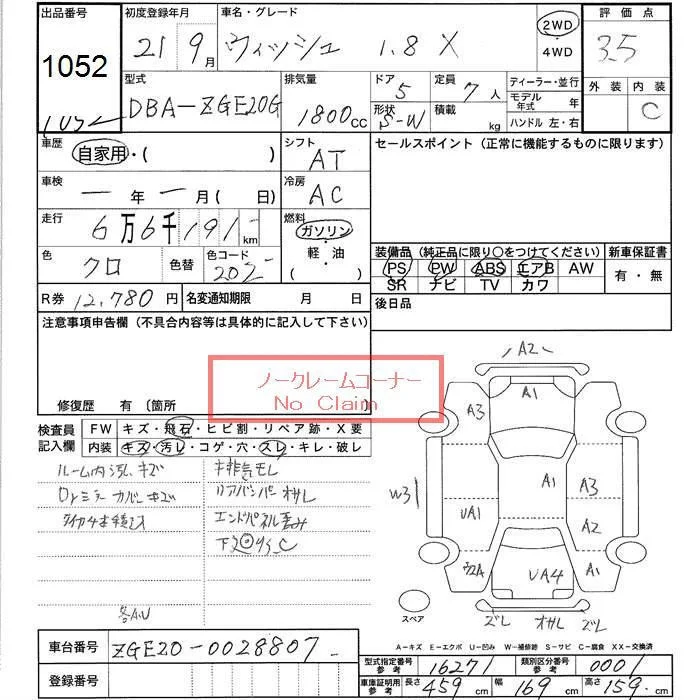 出品番号 初度登録年月 車名・グレード 2WD・4WD 評価点
1052 21年9月 ウィッシュ 1.8 X 3.5
型式 排気量 ドア 定員 ディーラー・並行 外装 内装
DBA-ZGE20G 1800cc 5 7人 モデル年式 年 C
形状 S-W 積載 kg ハンドル 左・右
車歴 自家用・( ) シフト AT セールスポイント (正常に機能するものに限ります)
車検 ー年ー月(日) 冷房 AC
走行 6万6千191km 燃料 ガソリン・軽油( )
色 クロ 色替 色コード 202 装備品 (純正品に限り○をつけてください) 新車保証書
PS PW ABS エアB AW 有・無
SR ナビ TV カワ
R券 12,780円 名変通知期限 月 日 後日品
注意事項申告欄 (不具合内容等は具体的に記入して下さい)
ノークレームコーナー
No Claim
修復歴 有 〔箇所 〕
検査員記入欄 FW キズ・飛石・ヒビ割・リペア跡・X要
内装 キズ・汚レ・コゲ・穴・スレ・キレ・破レ
ルーム内汚レキズ
Drミラーカバーキズ
タイヤ4本積込
排気モレ
リアバンパーオサレ
エンドパネル歪み
各A.U
A2
A1
A3
W3
A1
A3
UA1
A2
UA4
A1
スペア ズレ オサレ ズレ
A-キズ E-エクボ U-凹み W-補修跡 S-サビ C-腐食 XX-交換済
車台番号 ZGE20-0028807
登録番号
型式指定番号参考 16271 類別区分番号参考 0001
車庫証明用参考 長さ 459cm 幅 169cm 高さ 159cm